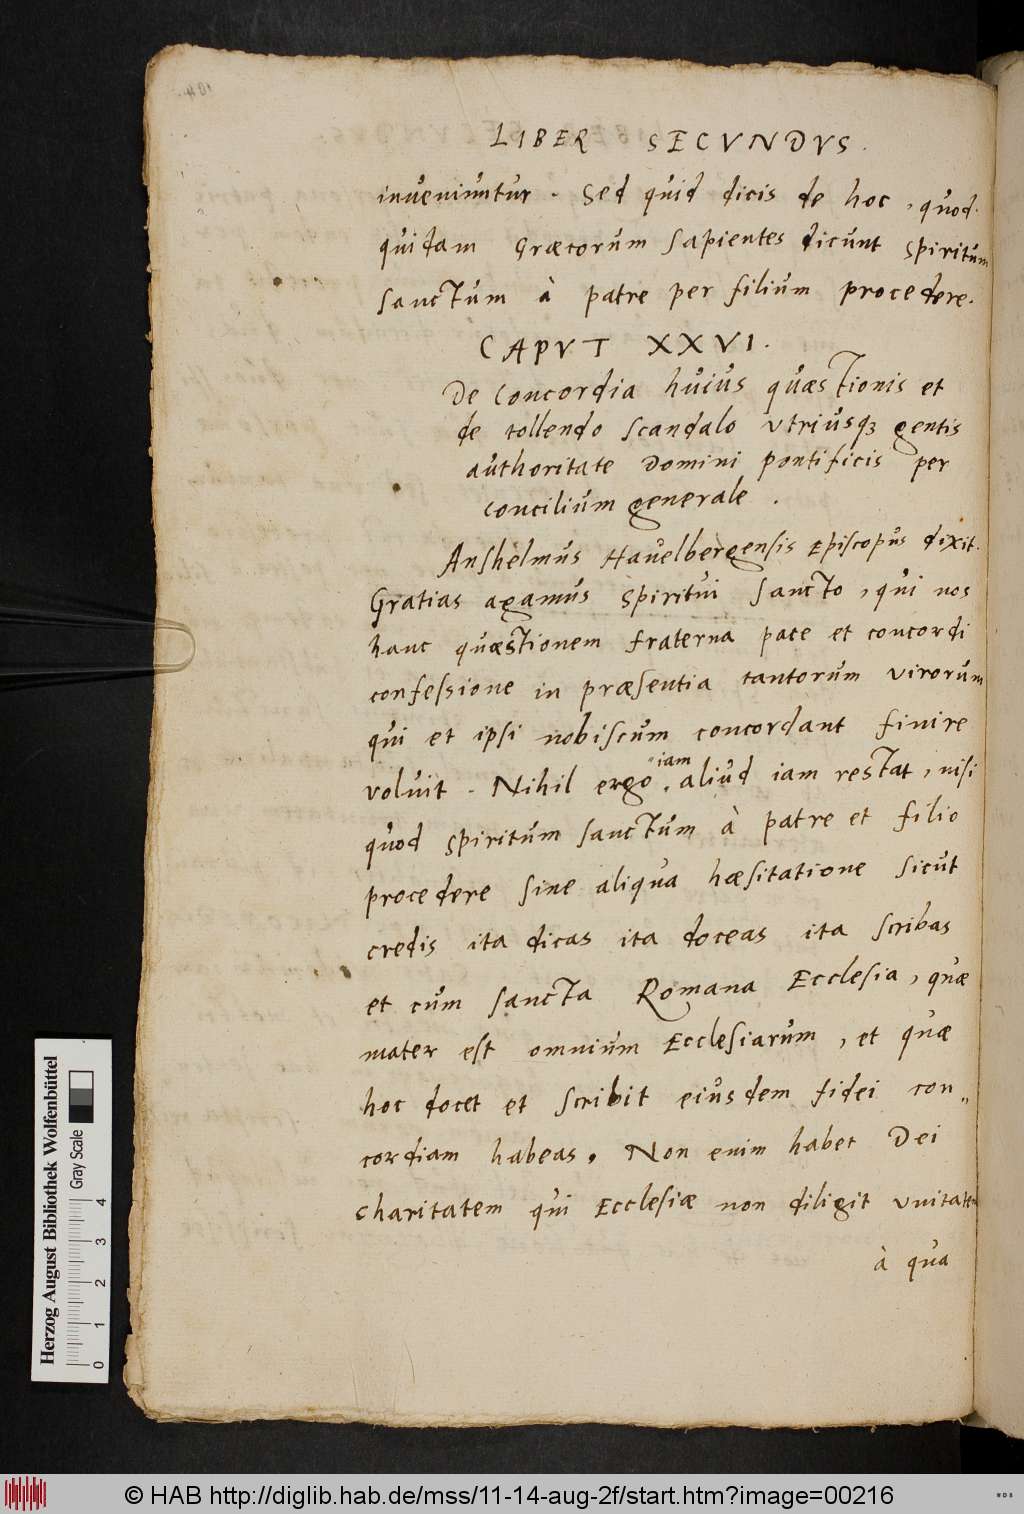 LIBER SECVNDVS.
inveniuntur. Sed quid dicis de hoc, quod
quidam Græcorum sapientes dicunt Spiritum
Sanctum à patre per filium procedere.
CAPVT XXVI.
De concordia huius quæstionis et
de tollendo scandalo vtriusqꝫ gentis
authoritate Domini pontificis per
concilium generale.
Anshelmus Havelbergensis Episcopus dixit.
Gratias agamus Spiritui Sancto, qui nos
hanc quæstionem fraterna pace et concordi
confessione in præsentia tantorum virorum
qui et ipsi nobiscum concordant finire
voluit. Nihil ergo iam aliud iam restat, nisi
quod Spiritum sanctum à patre et filio
procedere sine aliqua hæsitatione sicut
credis ita dicas ita doceas ita scribas
et cum sancta Romana Ecclesia, quæ
mater est omnium Ecclesiarum, et quæ
hoc docet et scribit eiusdem fidei con„
cordiam habeas. Non enim habet Dei
charitatem qui Ecclesiæ non diligit vnitatem
à qua
Herzog August Bibliothek Wolfenbüttel
Gray Scale
0 1 2 3 4
© HAB http://diglib.hab.de/mss/11-14-aug-2f/start.htm?image=00216